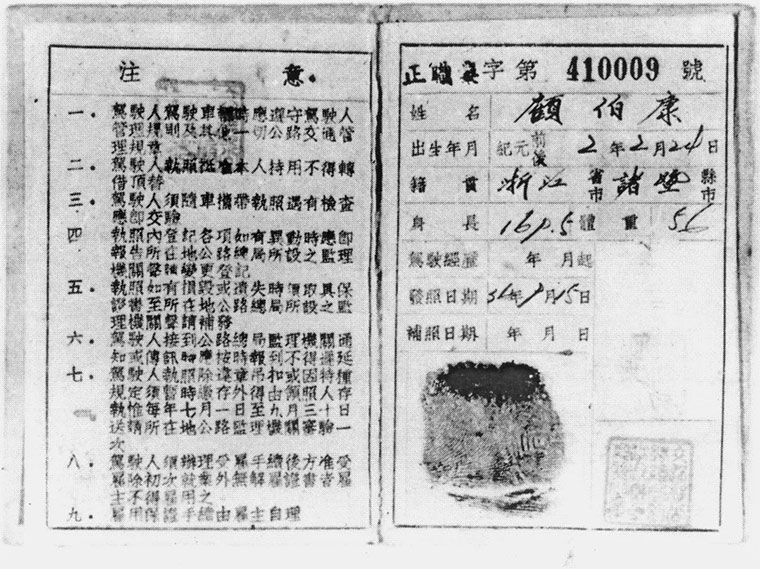 注意.
一. 駕駛人駕駛車輛時應遵守駕駛人
管理規則及其他一切公路交通管
理規章
二. 駕駛人執照祇准本人持用不得轉
借頂替
三. 駕駛人須隨車攜帶執照遇有檢查
應即交驗
四. 執照內所登記各項如有異動時應即
報告所在地公路總局所設之監理
機關聲請變更登記
五. 執照如有損毀或遺失時須取具保
認書至所在地公路總局所設之監
理機關聲請補
六. 駕駛人接到公路總局監理機關通
知或傳訊時應按時報到不得違延
七. 駕駛人執照除違章吊扣或因特種
規定須暫時繳存外得由領照人存
執惟每年七月一日至九月三十日
送請所在地公路監理機關審驗一
次
八. 駕駛人須辦理受雇手續後方准受
雇除初次就業外無解雇證書者雇
主不得雇用之
九. 雇用保證手續由雇主自理
正職 字第 410009 號
姓名 顧伯康
出生年月 紀元前後 2年2月24日
籍貫 浙江省市諸暨縣市
身長 169.5 體重 56
駕駛經歷 年月起
發照日期 36年9月15日
補照日期 年月日